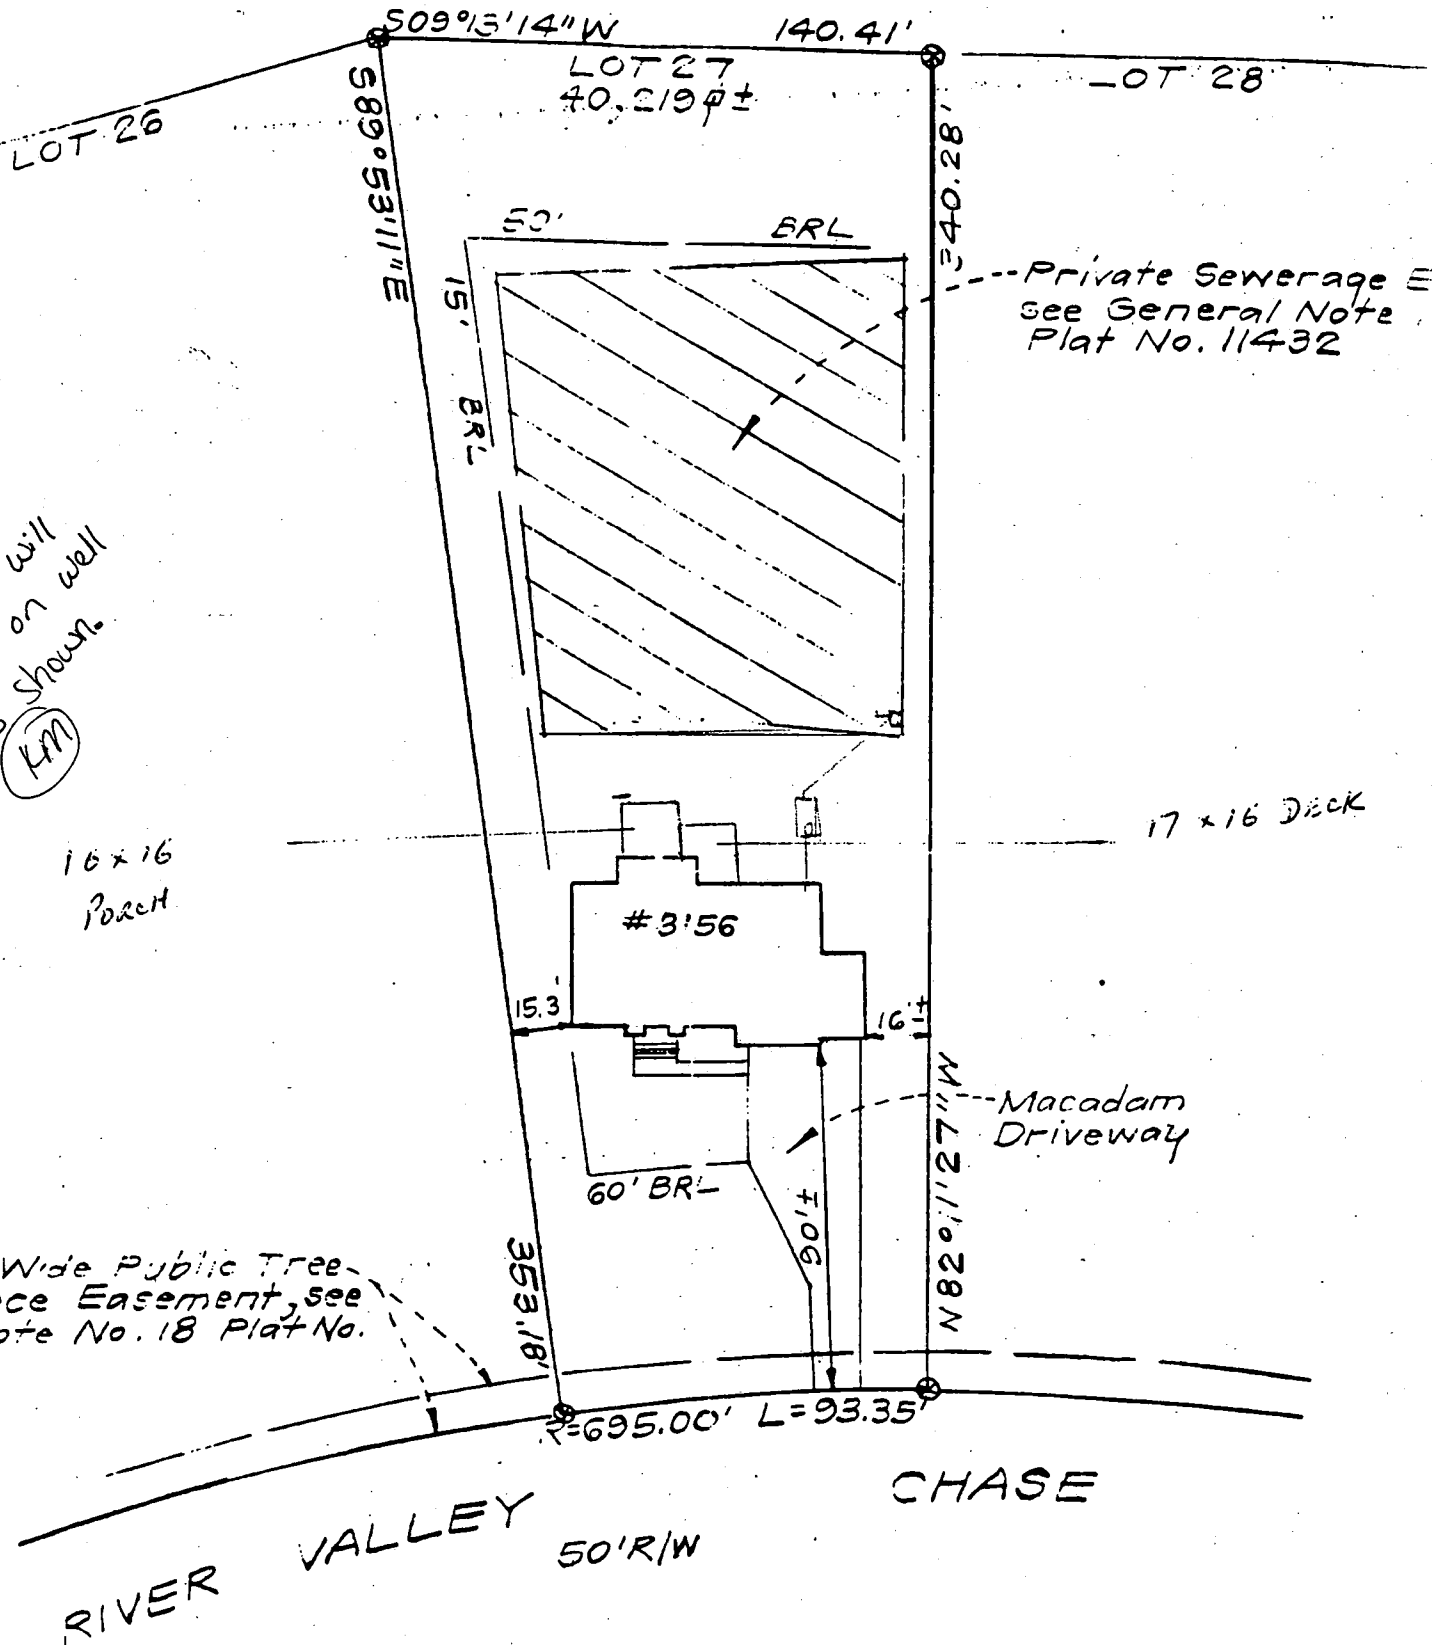 S09°13'14"W 140.41'
LOT 27
40,219 ⌀±
LOT 28
LOT 26
S89°53'11"E
340.28'
50' BRL
15' BRL
Private Sewerage E
see General Note
Plat No. 11432
will
on well
shown.
KM
16 x 16
PORCH
17 x 16 DECK
#3156
15.3'
16'±
Macadam
Driveway
60' BRL
90'±
N82°11'27"W
Wide Public Tree
Easement, see
No. 18 Plat No.
353.18'
R=695.00' L=93.35'
RIVER VALLEY CHASE
50'R/W